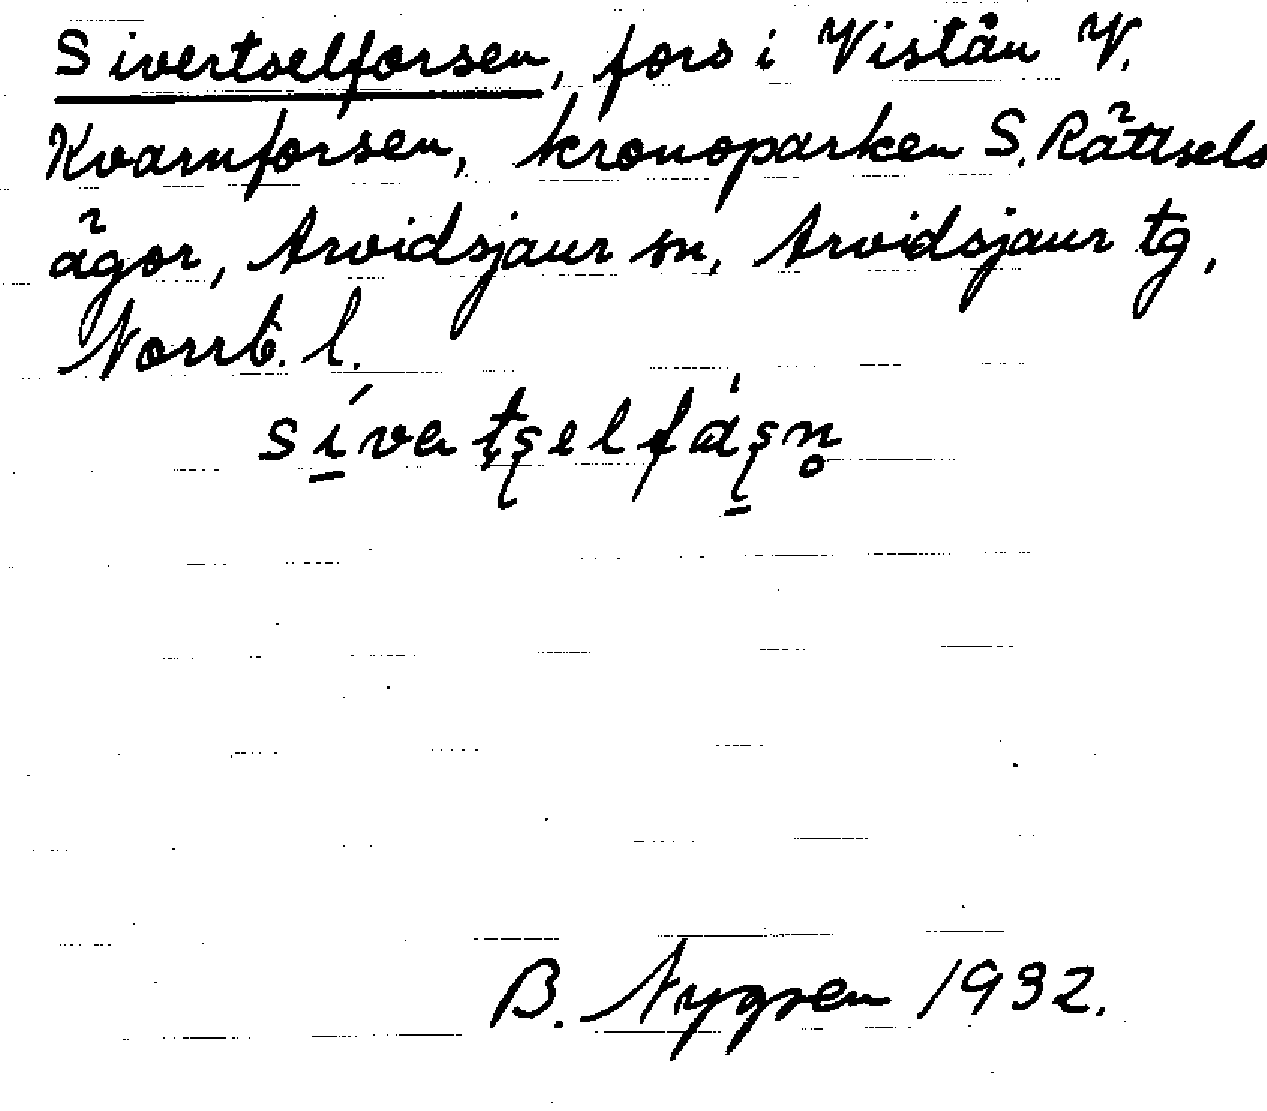 Sivertselforsen, fors i Viståu V.
Kvarnforsen, kronoparken S. Rättsels
ägor, Arvidsjaur sn, Arvidsjaur tg,
Norrb. l.
B. Nygren 1932.